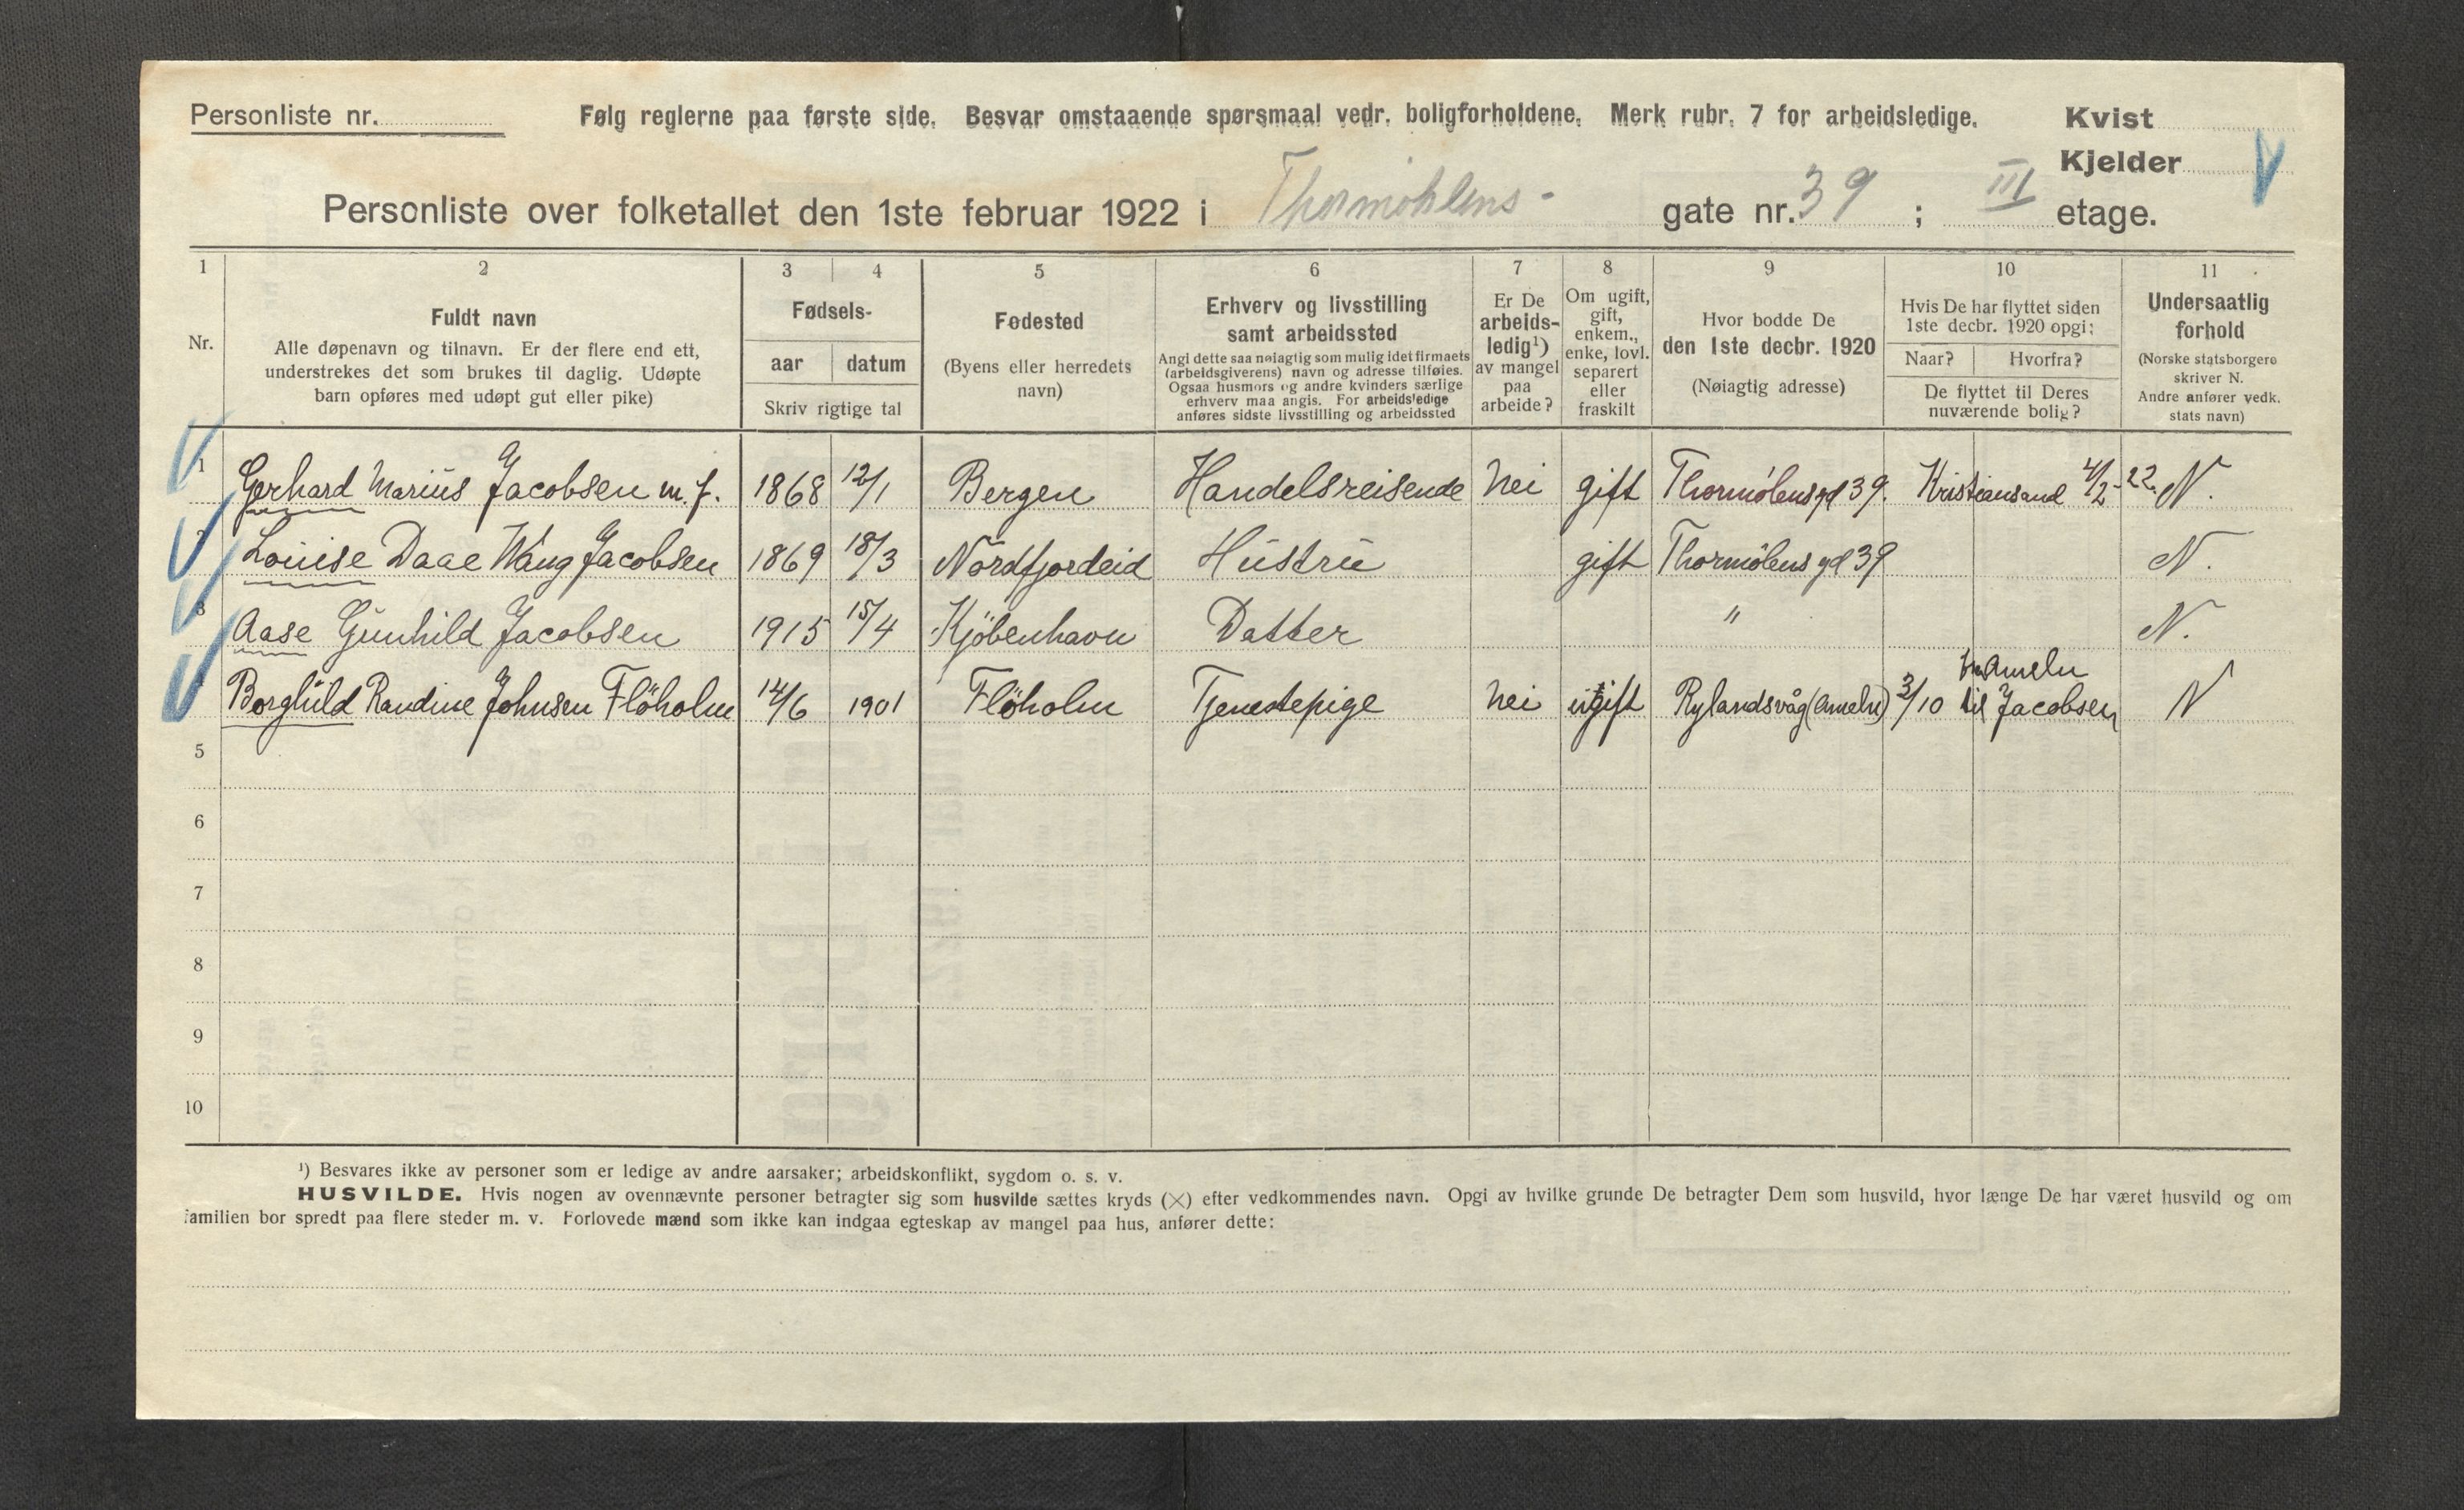 Personliste nr.
Følg reglerne paa første side. Besvar omstaaende spørsmaal vedr. boligforholdene. Merk rubr. 7 for arbeidsledige.
Kvist
Kjelder
Personliste over folketallet den 1ste februar 1922 i Thormøhlens - gate nr. 39 ; III etage.
1 2 3 4 5 6 7 8 9 10 11
Nr.
Fuldt navn
Alle døpenavn og tilnavn. Er der flere end ett,
understrekes det som brukes til daglig. Udøpte
barn opføres med udøpt gut eller pike)
Fødsels-
aar datum
Skriv rigtige tal
Fødested
(Byens eller herredets
navn)
Erhverv og livsstilling
samt arbeidssted
Angi dette saa nøiagtig som mulig idet firmaets
(arbeidsgiverens) navn og adresse tilføies.
Ogsaa husmors og andre kvinders særlige
erhverv maa angis. For arbeidsledige
anføres sidste livsstilling og arbeidssted
Er De
arbeids-
ledig¹)
av mangel
paa
arbeide?
Om ugift,
gift,
enkem.,
enke, lovl.
separert
eller
fraskilt
Hvor bodde De
den 1ste decbr. 1920
(Nøiagtig adresse)
Hvis De har flyttet siden
1ste decbr. 1920 opgi:
Naar? Hvorfra?
De flyttet til Deres
nuværende bolig?
Undersaatlig
forhold
(Norske statsborgere
skriver N.
Andre anfører vedk.
stats navn)
1 Gerhard Marius Jacobsen m.f. 1868 12/1 Bergen Handelsreisende Nei gift Thormölensgd 39. Kristiansand 4/2-22. N.
2 Louise Daae Wang Jacobsen 1869 18/3 Nordfjordeid Hustru gift Thormölens gd 39 N.
3 Aase Gunhild Jacobsen 1915 15/4 Kjöbenhavn Datter " N.
Borghild Randine Johnsen Flöholm 14/6 1901 Flöholm Tjenestepige Nei ugift Rylandsvåg (Ameln) 3/10 fra Ameln til Jacobsen N
5
6
7
8
9
10
¹) Besvares ikke av personer som er ledige av andre aarsaker; arbeidskonflikt, sygdom o. s. v.
HUSVILDE. Hvis nogen av ovennævnte personer betragter sig som husvilde sættes kryds (×) efter vedkommendes navn. Opgi av hvilke grunde De betragter Dem som husvild, hvor længe De har været husvild og om
familien bor spredt paa flere steder m. v. Forlovede mænd som ikke kan indgaa egteskap av mangel paa hus, anfører dette: